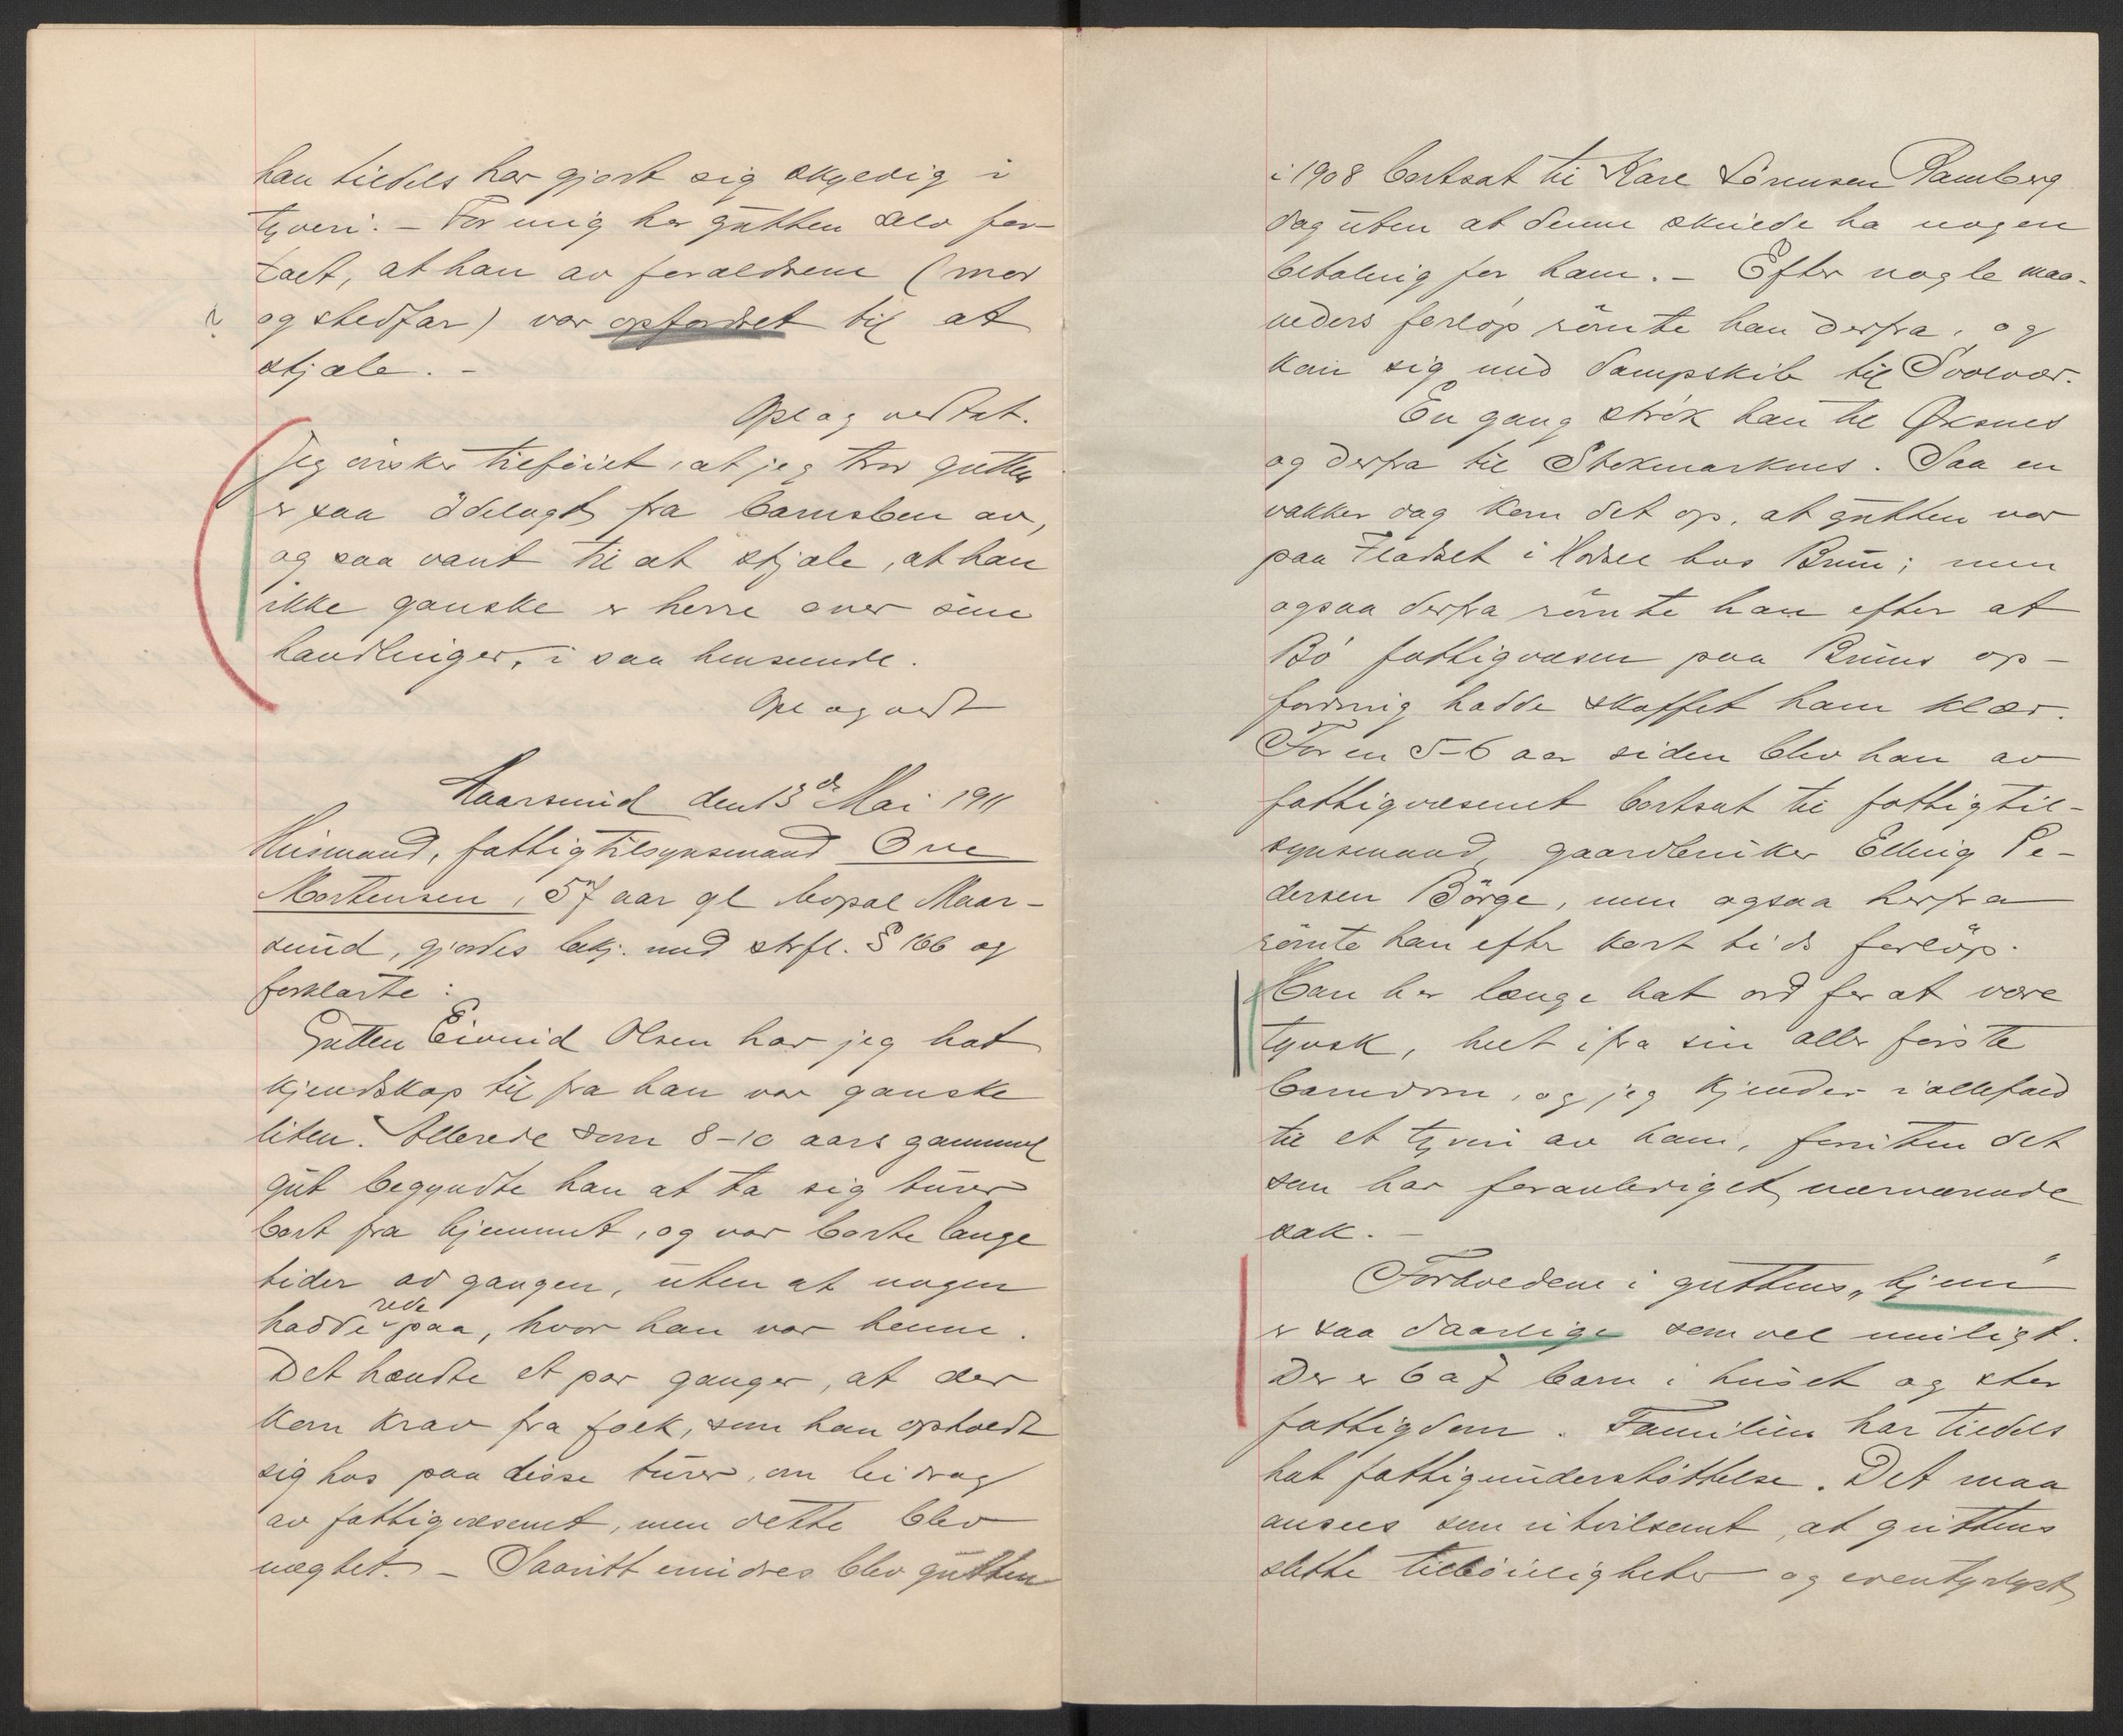 han tildels har gjort sig skyldig i
tyveri. – For mig har gutten selv for-
talt, at han av forældrene (mor
og stedfar) var opfordret til at
stjæle. –
Opl og vedtat.
Jeg ønsker tilføiet, at jeg tror gutten
er saa ödelagt fra barnsben av,
og saa vant til at stjæle, at han
ikke ganske er herre over sine
handlinger, i saa henseende.
Opl og vedt
Maarsund den 13de Mai 1911
Husmand, fattigtilsynsmand Ove
Mortensen, 57 aar gl bopæl Maar-
sund, gjordes bekj. med strfl. § 166 og
forklarte:
Gutten Eivind Olsen har jeg hat
kjendskap til fra han var ganske
liten. Allerede som 8-10 aars gammel
gut begyndte han at ta sig turer
bort fra hjemmet, og var borte lange
tider ad gangen, uten at nogen
hadde rede paa, hvor han var henne.
Det hændte et par ganger, at der
kom krav fra folk, som han opholdt
sig hos paa disse turer, om bidrag
av fattigvæsenet, men dette blev
nægtet. – Saavitt erindres blev gutten
i 1908 bortsat til Karl Sörensen Ramberg
dog uten at denne skulde ha nogen
betaling for ham. – Efter nogle maa-
neders forløp römte han derfra, og
kom sig med dampskib til Svolvær.
En gang strök han til Øksnes
og derfra til Stokmarknes. Saa en
vakker dag kom det op, at gutten var
paa Fladset i Hadsel hos Bruun; men
ogsaa derfra römte han efter at
Bö fattigvæsen paa Bruuns op-
fordring hadde skaffet ham klær.
For en 5-6 aar siden blev han av
fattigvæsenet bortsat til fattigtil-
synsmand, gaardbruker Elling Pe-
dersen Börge, men ogsaa herfra
römte han efter kort tids forlöp.
Han har længe hat ord for at være
tyvsk, helt ifra sin aller förste
barndom, og jeg kjender iallefald
til et tyveri av ham, foruten det
som har foranlediget nærværende
sak. –
Forholdene i guttens „hjem“
er saa daarlige som vel muligt.
Der er 6 a 7 barn i huset og stor
fattigdom. Familien har tildels
hat fattigunderstöttelse. Det maa
ansees som utvilsomt, at guttens
slette tilböieligheter og eventyrlyst